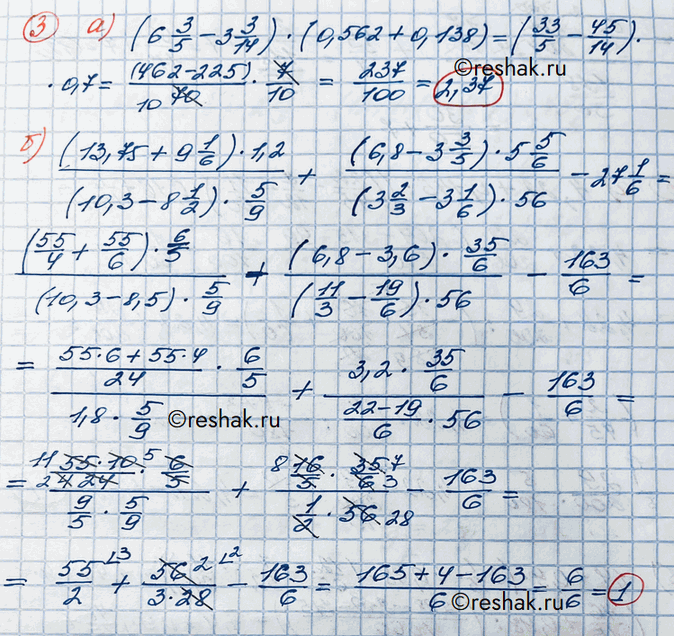 ③ а) (6 3/5 − 3 3/14) · (0,562 + 0,138) = (33/5 − 45/14) ·
· 0,7 = (462 − 225)/(10 70) · 7/10 = 237/100 = 2,37
©reshak.ru
б) ((13,75 + 9 1/6) · 1,2)/((10,3 − 8 1/2) · 5/9) + ((6,8 − 3 3/5) · 5 5/6)/((3 2/3 − 3 1/6) · 56) − 27 1/6 =
((55/4 + 55/6) · 6/5)/((10,3 − 8,5) · 5/9) + ((6,8 − 3,6) · 35/6)/((11/3 − 19/6) · 56) − 163/6 =
= ((55·6 + 55·4)/24 · 6/5)/(1,8 · 5/9) + (3,2 · 35/6)/((22 − 19)/6 · 56) − 163/6 =
©reshak.ru
= (11 55 · 10 5/(2 4 24) · 6/5)/(9/5 · 5/9) + (8 16/5 · 35 7/(6 3))/(1/2 · 56 28) − 163/6 =
= 55/2 ⌊3 + 56 2/(3 · 28) ⌊2 − 163/6 = (165 + 4 − 163)/6 = 6/6 = 1
©reshak.ru